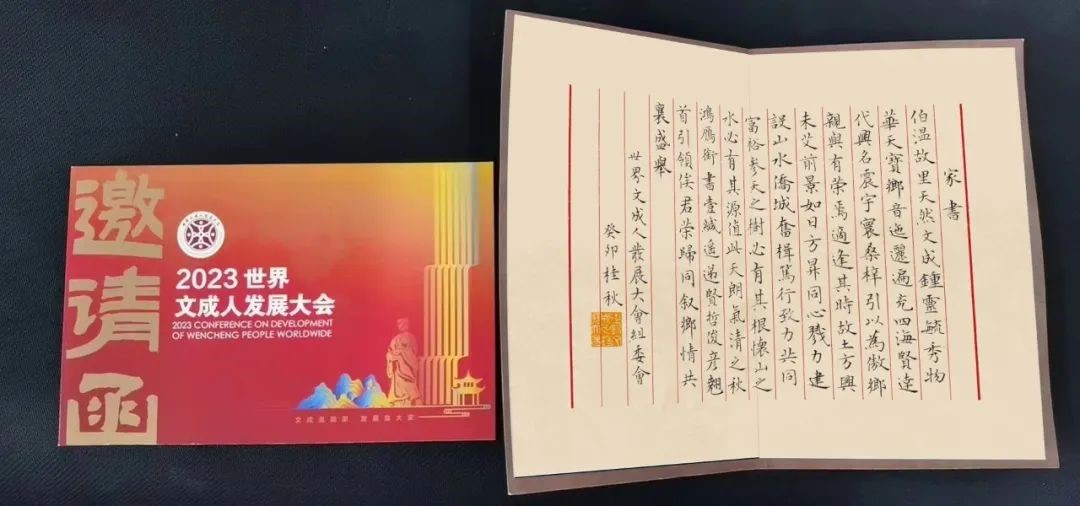 邀请函
2023 世界
文成人发展大会
2023 CONFERENCE ON DEVELOPMENT
OF WENCHENG PEOPLE WORLDWIDE
文成是我家 发展靠大家
家書
伯温故里天然文成鍾靈毓秀物
華天寶鄉音迤邐遍充四海賢達
代興名震宇寰桑梓引以為傲鄉
親與有榮焉適逢其時故土方興
未艾前景如日方昇同心戮力建
設山水僑城奮楫篤行致力共同
富裕參天之樹必有其根懷山之
水必有其源值此天朗氣清之秋
鴻雁銜書壹緘遥递賢哲俊彦翹
首引領俟君荣歸同叙鄉情共
襄盛舉
世界文成人發展大會組委會
癸卯桂秋